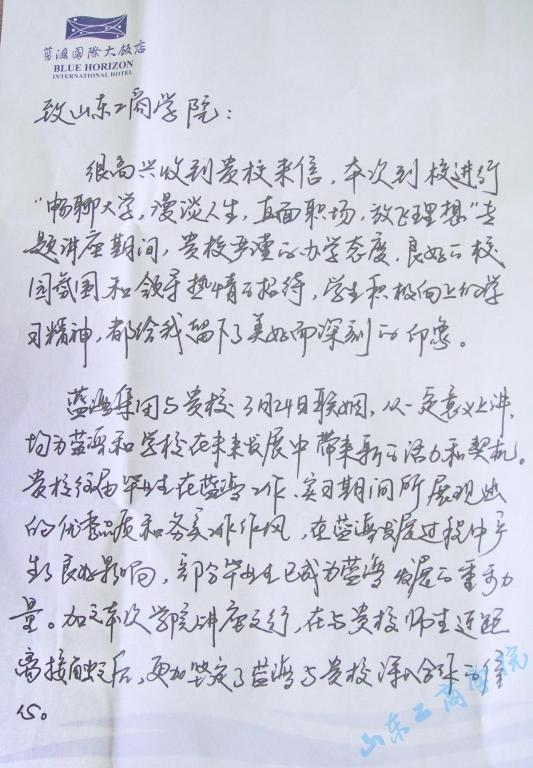 蓝海国际大饭店
BLUE HORIZON
INTERNATIONAL HOTEL
致山东工商学院：
很高兴收到贵校来信，本次到校进行
“畅聊大学，漫谈人生，直面职场，放飞理想”专
题讲座期间，贵校严谨的办学态度，良好的校
园氛围和领导热情的招待，学生积极向上的学
习精神，都给我留下了美好而深刻的印象。
蓝海集团与贵校3月24日联姻，从一定意义上讲，
均为蓝海和学校在未来发展中带来新的活力和契机。
贵校往届毕业生在蓝海工作、实习期间所展现出
的优秀品质和务实工作作风，在蓝海发展过程中产
生了良好影响，部分毕业生已成为蓝海发展的重要力
量。加之本次学院讲座之行，在与贵校师生近距
离接触之后，更加坚定了蓝海与贵校深入合作的信
心。
山东工商学院